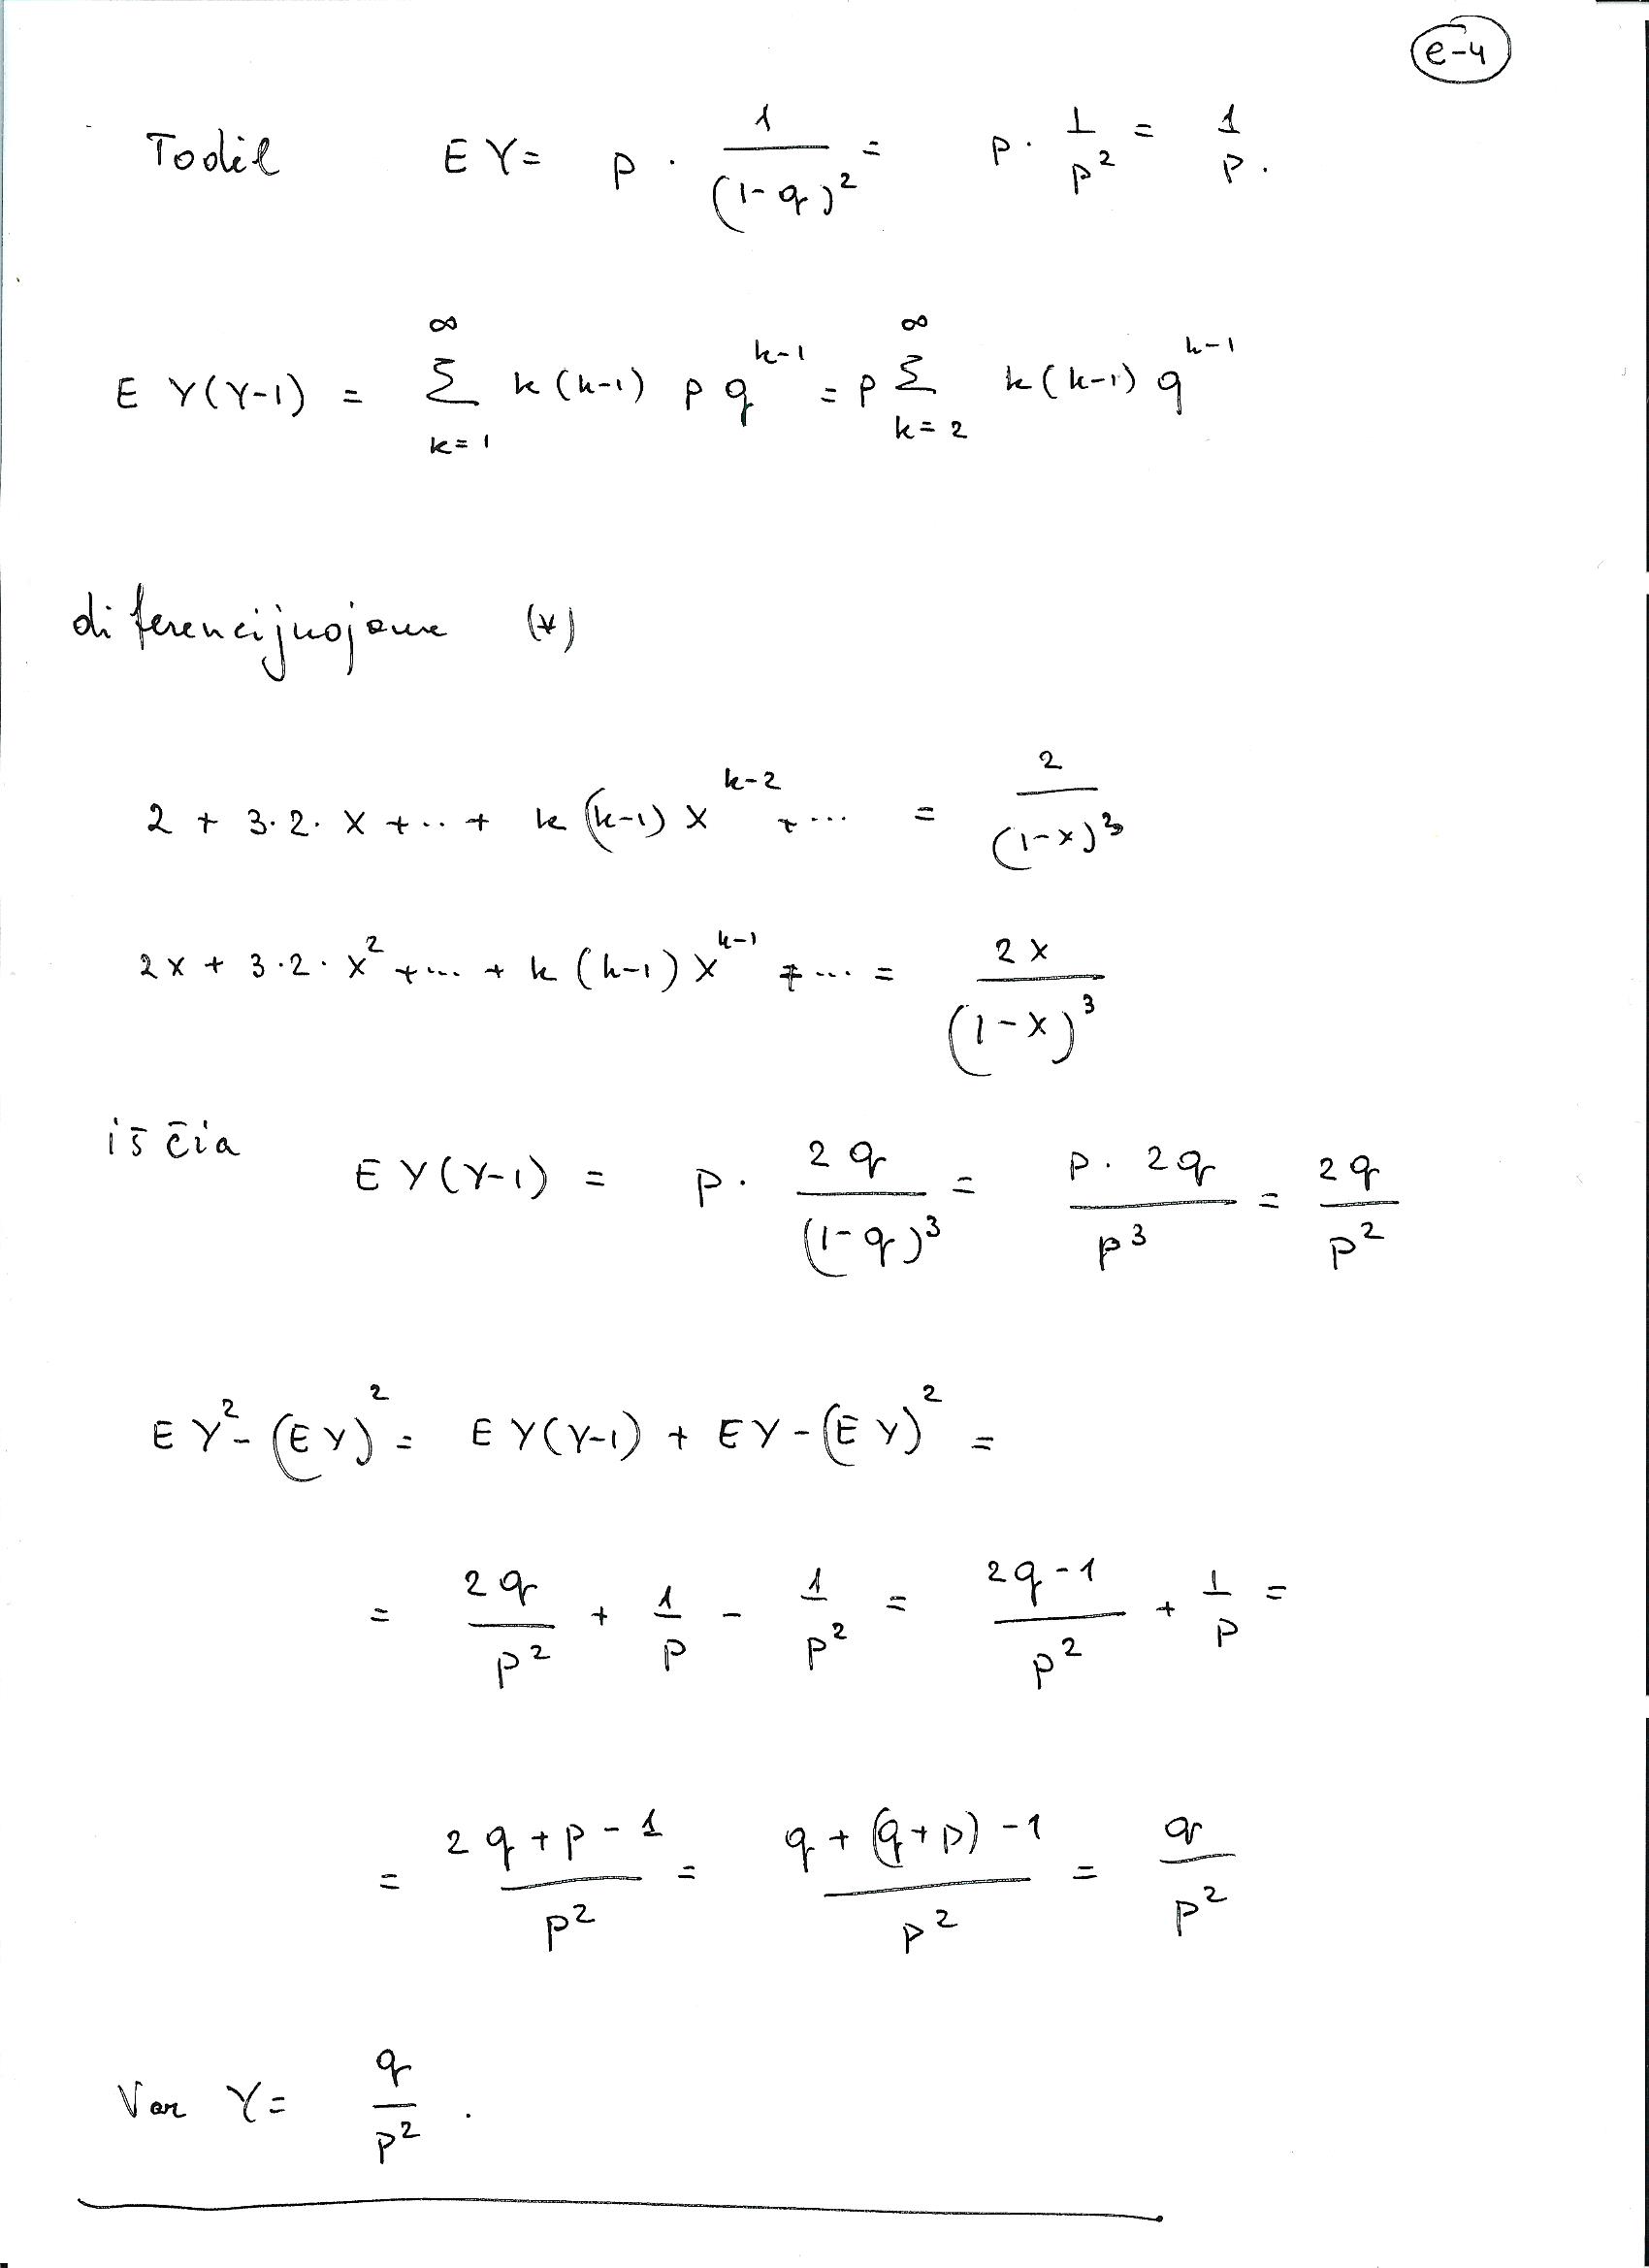 e-4
Todėl EY = p · 1/(1-q)² = p · 1/p² = 1/p.
E Y(Y-1) = ∑_{k=1}^{∞} k(k-1) p q^{k-1} = p ∑_{k=2}^{∞} k(k-1) q^{k-1}
diferencijuojame (*)
2 + 3·2·x + ... + k(k-1) x^{k-2} + ... = 2/(1-x)³
2x + 3·2·x² + ... + k(k-1) x^{k-1} + ... = 2x/(1-x)³
iš čia EY(Y-1) = p · 2q/(1-q)³ = p·2q/p³ = 2q/p²
EY² - (EY)² = EY(Y-1) + EY - (EY)² =
= 2q/p² + 1/p - 1/p² = (2q-1)/p² + 1/p =
= (2q+p-1)/p² = (q+(q+p)-1)/p² = q/p²
Var Y = q/p².